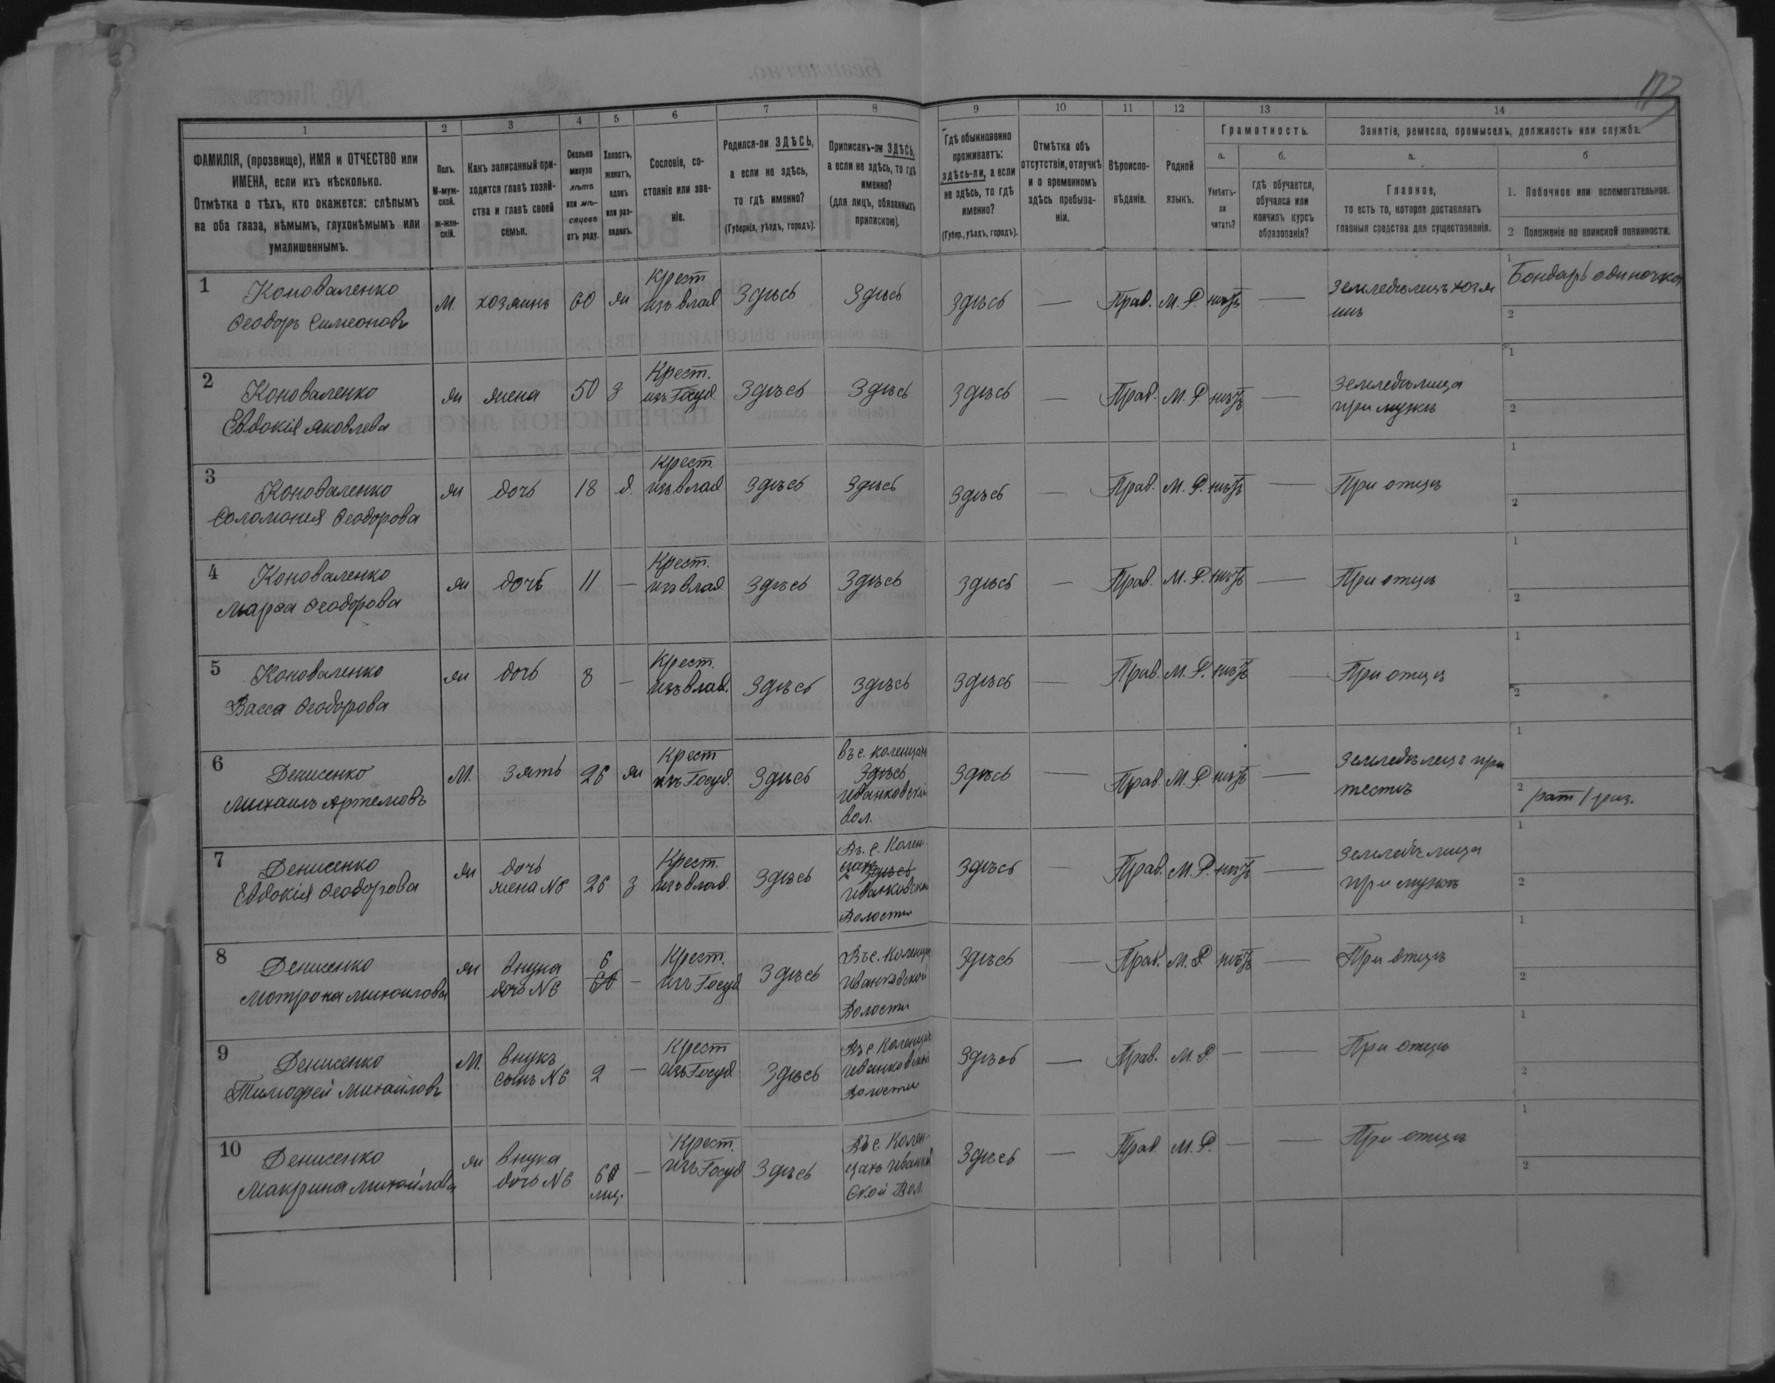 1 2 3 4 5 6 7 8 9 10 11 12 13 14
ФАМИЛІЯ, (прозвище), ИМЯ и ОТЧЕСТВО или
ИМЕНА, если ихъ нѣсколько.
Отмѣтка о тѣхъ, кто окажется: слѣпымъ
на оба глаза, нѣмымъ, глухонѣмымъ или
умалишеннымъ.
Полъ.
М-муж-
ской.
ж-жен-
скій.
Какъ записанный при-
ходится главѣ хозяй-
ства и главѣ своей
семьи.
Сколько
минуло
лѣтъ
или мѣ-
сяцевъ
отъ роду.
Холостъ,
женатъ,
вдовъ
или раз-
веденъ.
Сословіе, со-
стояніе или зва-
ніе.
Родился-ли ЗДѢСЬ,
а если не здѣсь,
то гдѣ именно?
(Губернія, уѣздъ, городъ).
Приписанъ-ли ЗДѢСЬ,
а если не здѣсь, то гдѣ
именно?
(для лицъ, обязанныхъ
припискою).
Гдѣ обыкновенно
проживаетъ:
здѣсь-ли, а если
не здѣсь, то гдѣ
именно?
(Губер., уѣздъ, городъ).
Отмѣтка объ
отсутствіи, отлучкѣ
и о временномъ
здѣсь пребыва-
ніи.
Вѣроиспо-
вѣданіе.
Родной
языкъ.
Грамотность.
а.
Умѣетъ-
ли
читать?
б.
гдѣ обучается,
обучался или
кончилъ курсъ
образованія?
Занятіе, ремесло, промыселъ, должность или служба.
а.
Главное,
то есть то, которое доставляетъ
главныя средства для существованія.
б
1. Побочное или вспомогательное.
2 Положеніе по воинской повинности.
1 Коноваленко
Ѳеодоръ Симеоновъ
М. хозяинъ 60 ж
Крест
изъ влад
Здѣсь Здѣсь Здѣсь — Прав. М. Р. нѣтъ —
1 Бондарь одиночка
2
2 Коноваленко
Евдокія Яковлева
ж жена 50 з
Крест.
изъ Госуд.
Здѣсь Здѣсь Здѣсь — Прав. М. Р нѣтъ —
Земледѣлица
при мужѣ
1
2
3 Коноваленко
Соломонія Ѳеодорова
ж дочь 18 д.
Крест
изъ влад
Здѣсь Здѣсь Здѣсь — Прав. М. Р. нѣтъ —
При отцѣ
1
2
4 Коноваленко
Марѳа Ѳеодорова
ж дочь 11 —
Крест.
изъ влад
Здѣсь Здѣсь Здѣсь — Прав. М. Р. нѣтъ —
При отцѣ
1
2
5 Коноваленко
Васса Ѳеодорова
ж дочь 8 —
Крест.
изъ влад.
Здѣсь Здѣсь Здѣсь — Прав. М. Р. нѣтъ —
При отцѣ
1
2
6 Денисенко
Михаилъ Артемовъ
М. Зять 26 ж
Крест
изъ Госуд.
Здѣсь
въ с. Коленцах
Здѣсь
Иванковской
вол.
Здѣсь — Прав. М. Р. нѣтъ —
Земледѣлецъ при
тестѣ
1
2
7 Денисенко
Евдокія Ѳеодорова
ж
дочь
жена №6
26 з
Крест.
изъ влад.
Здѣсь
Въ. с. Колен
цахъ Здѣсь
Иванковской
Волости
Здѣсь — Прав. М. Р. нѣтъ —
Земледѣлица
при мужѣ
1
2
8 Денисенко
Мотрона Михаилова
ж
внука
дочь №6
6
—
Крест.
изъ Госуд
Здѣсь
Въ с. Коленца
Иванковской
Волости
Здѣсь — Прав. М. Р нѣтъ —
При отцѣ
1
2
9 Денисенко
Тимофей Михайловъ
М.
внукъ
сынъ №6
2 —
Крест
изъ Госуд
Здѣсь
Въ с. Коленцах
Иванковской
Волости
Здѣсь — Прав. М. Р. — —
При отцѣ
1
2
10 Денисенко
Макрина Михайлова
ж
внука
дочь №6
—
Крест.
изъ Госуд
Здѣсь
Въ с. Колен-
цахъ Иванков
ской Вол.
Здѣсь — Прав М. Р. — —
При отцѣ
1
2